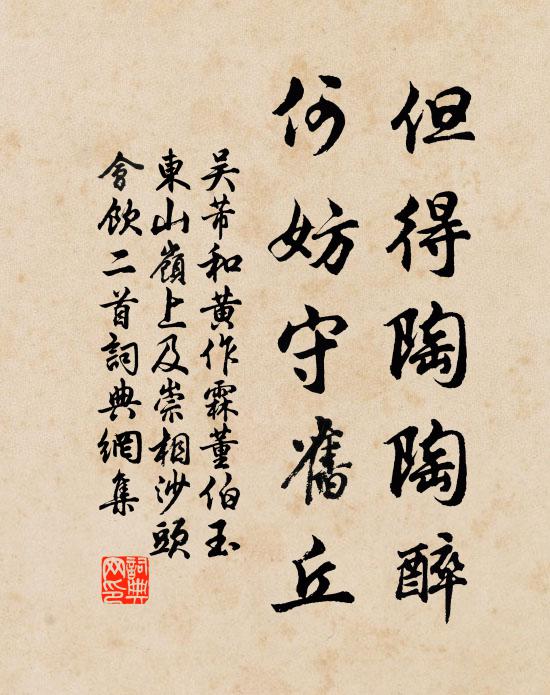 但得陶陶醉
何妨守舊丘
吴芾和黄作霖董伯玉
東山嶺上及崇相沙頭
會飲二首詞典網集
詞典网印